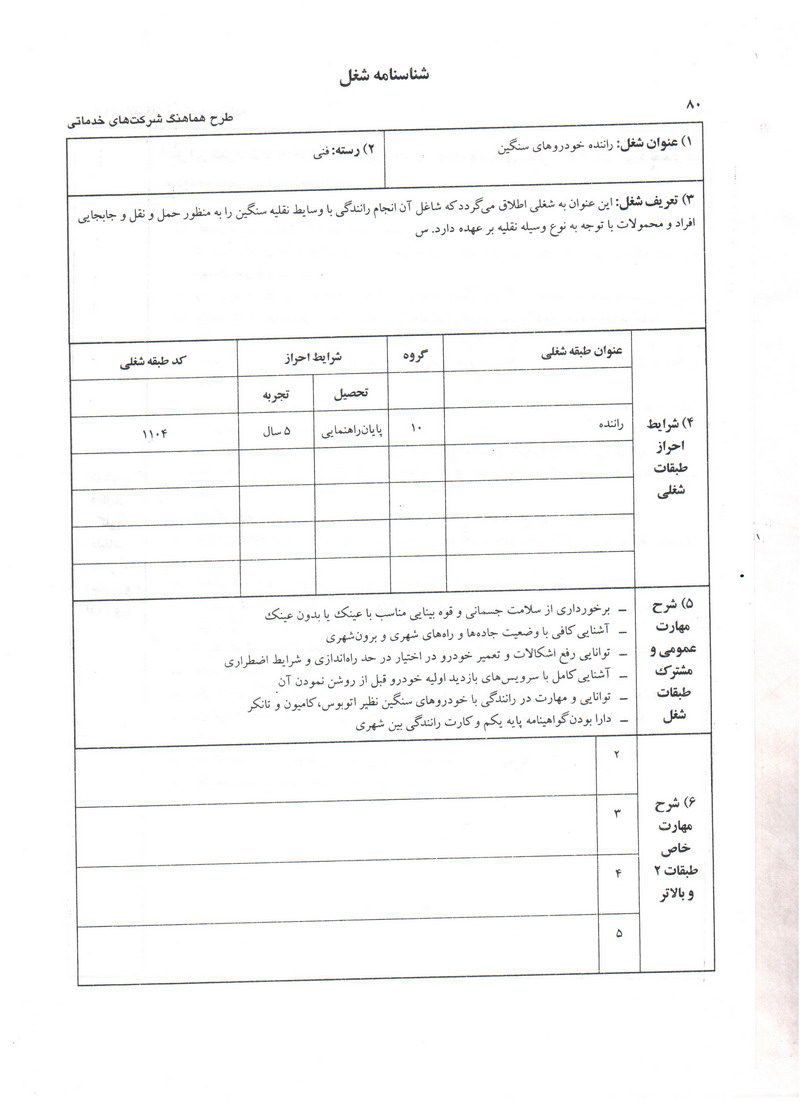 شناسنامه شغل
۸۰
طرح هماهنگ شرکت‌های خدماتی
۱) عنوان شغل: راننده خودروهای سنگین
۲) رسته: فنی
۳) تعریف شغل: این عنوان به شغلی اطلاق می‌گردد که شاغل آن انجام رانندگی با وسایط نقلیه سنگین را به منظور حمل و نقل و جابجایی
افراد و محمولات با توجه به نوع وسیله نقلیه بر عهده دارد. س
۴) شرایط
احراز
طبقات
شغلی
عنوان طبقه شغلی
گروه
شرایط احراز
کد طبقه شغلی
تحصیل
تجربه
راننده
۱۰
پایان‌راهنمایی
۵ سال
۱۱۰۴
۵) شرح
مهارت
عمومی و
مشترک
طبقات
شغل
– برخورداری از سلامت جسمانی و قوه بینایی مناسب با عینک یا بدون عینک
– آشنایی کافی با وضعیت جاده‌ها و راه‌های شهری و برون‌شهری
– توانایی رفع اشکالات و تعمیر خودرو در اختیار در حد راه‌اندازی و شرایط اضطراری
– آشنایی کامل با سرویس‌های بازدید اولیه خودرو قبل از روشن نمودن آن
– توانایی و مهارت در رانندگی با خودروهای سنگین نظیر اتوبوس، کامیون و تانکر
– دارا بودن گواهینامه پایه یکم و کارت رانندگی بین شهری
۶) شرح
مهارت
خاص
طبقات ۲
و بالاتر
۲
۳
۴
۵